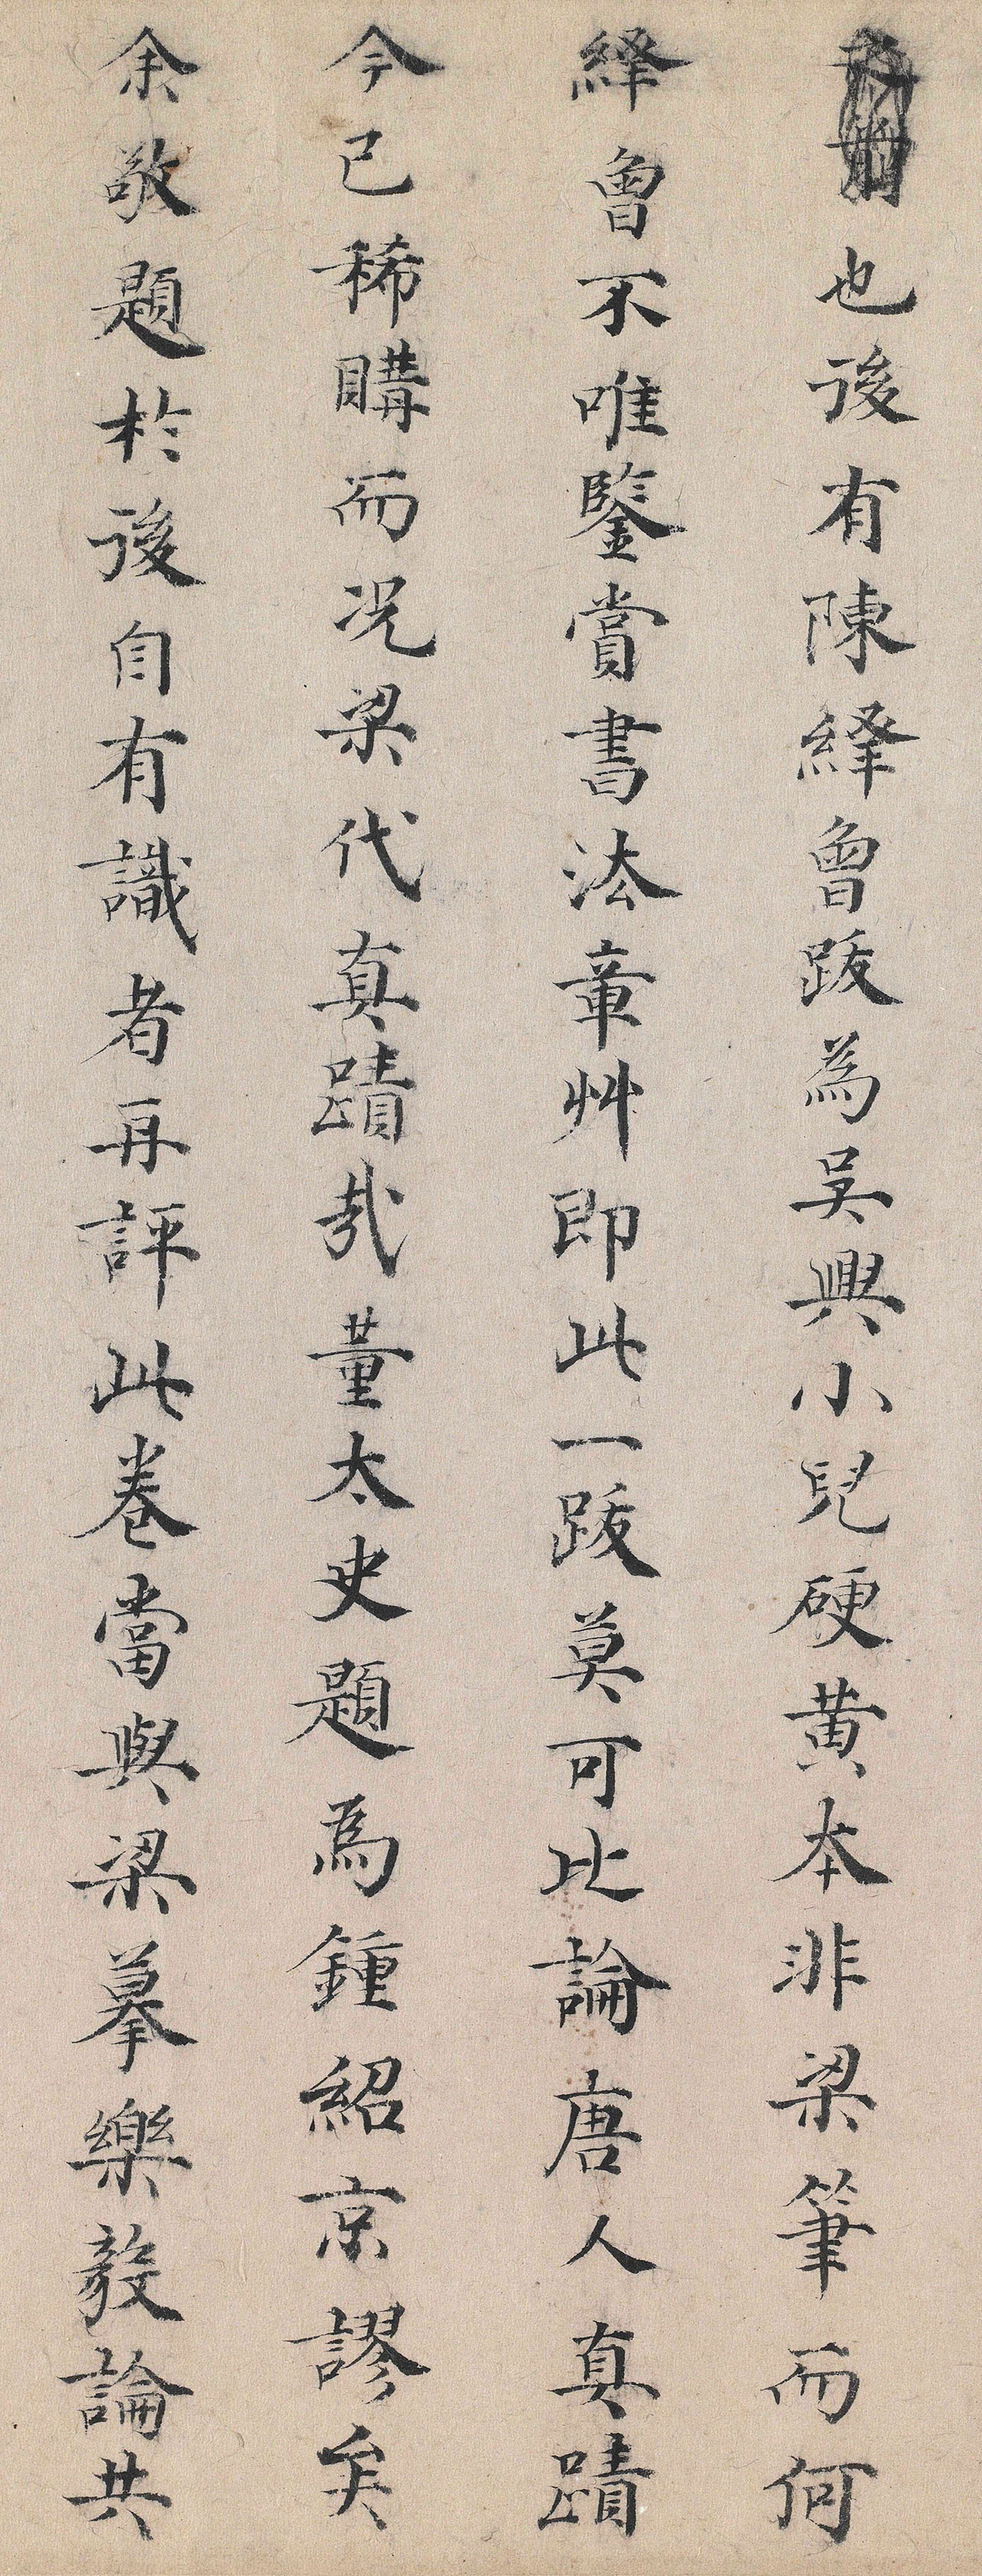 也後有陳繹曾跋為吳興小兒硬黃本非梁筆而何
繹曾不唯鑒賞書法章艸即此一跋莫可比論唐人真蹟
今已稀購而况梁代真蹟哉董太史題為鍾紹京謬矣
余敬題於後自有識者再評此卷當與梁摹樂毅論共